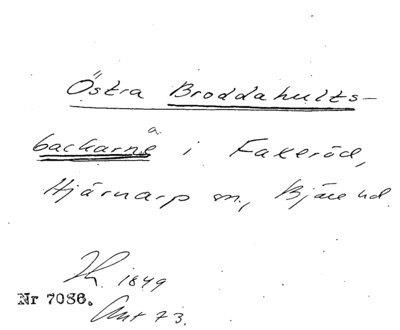 Östra Broddahults-
backarne a
i Fakeröd,
Hjärnarp sn, Bjäre hd.
1849
Nr 7086.
Ant 73.